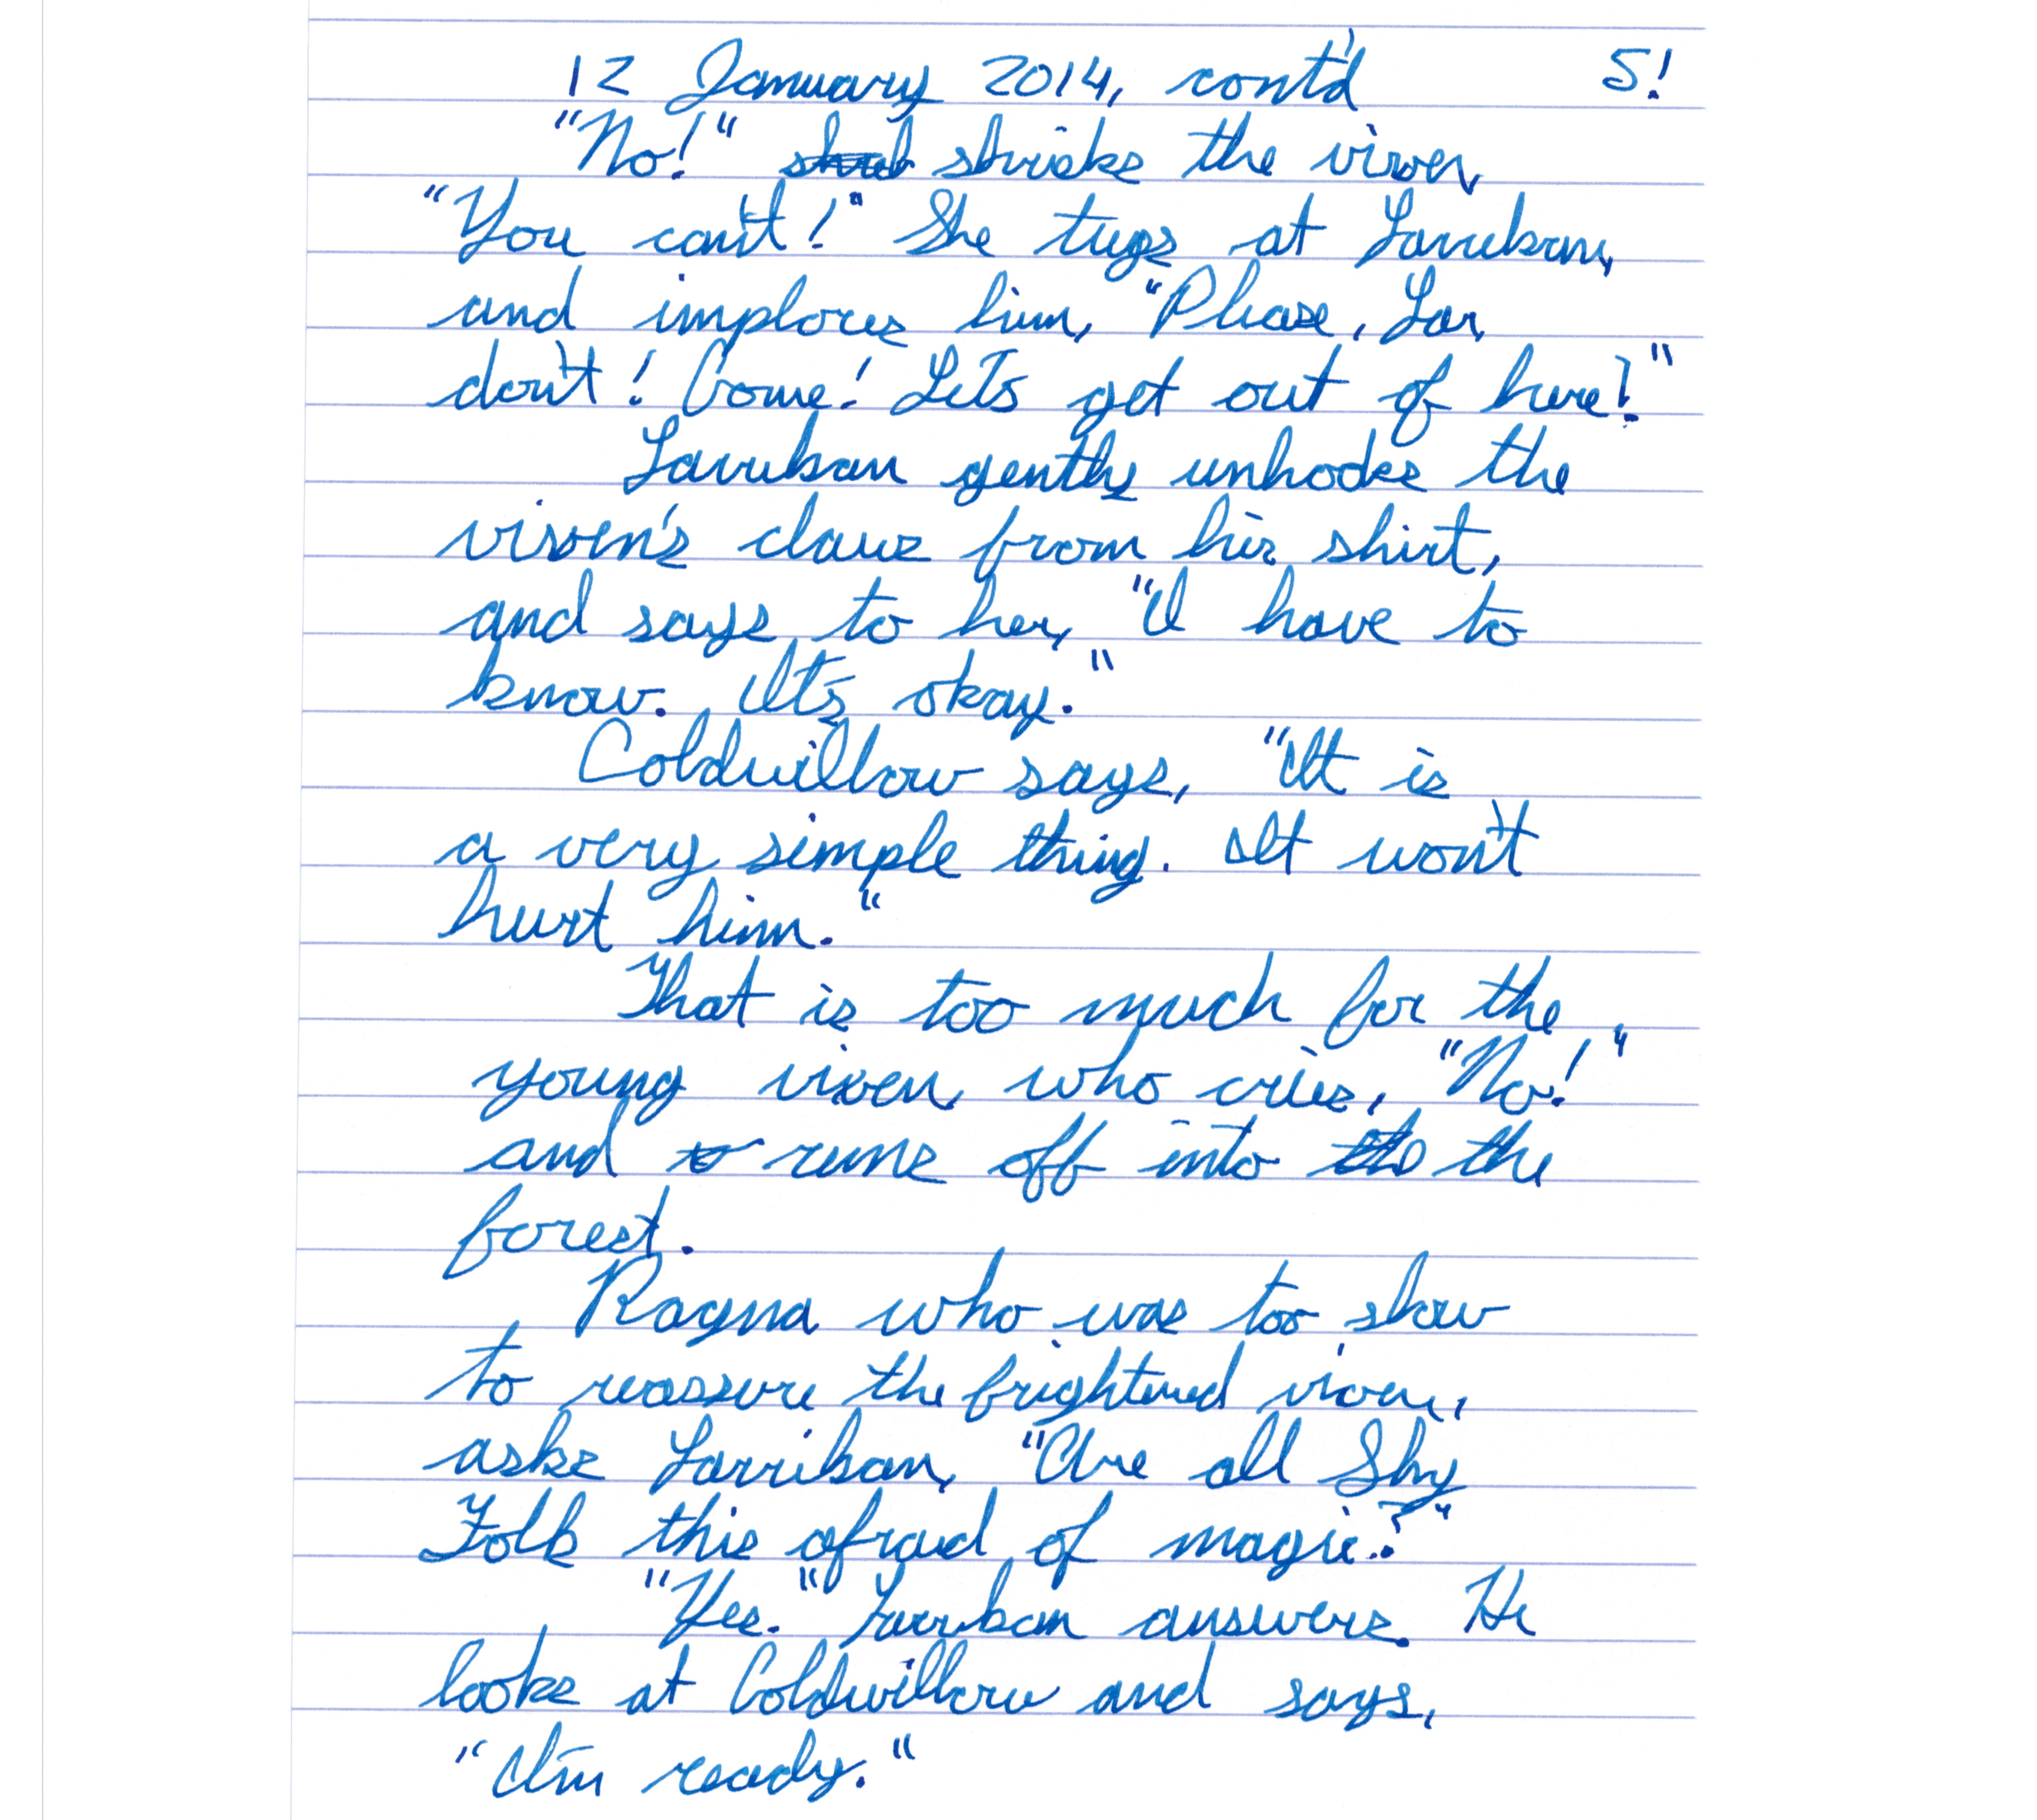 12 January 2014, cont'd 5!
"No!" shrieks the vixen,
"You can't!" She tugs at Larrikan,
and implores him, "Please, Lar,
don't! Come! Let's get out of here!"
Larrikan gently unhooks the
vixen's claws from his shirt,
and says to her, "I have to
know. It's okay."
Coldwillow says, "It is
a very simple thing. It won't
hurt him."
That is too much for the
young vixen, who cries, "No!"
and runs off into the
forest.
Ragna who was too slow
to reassure the frightened vixen,
asks Larrikan, "Are all Shy
Folk this afraid of magic?"
"Yes." Larrikan answers. He
looks at Coldwillow and says,
"I'm ready."